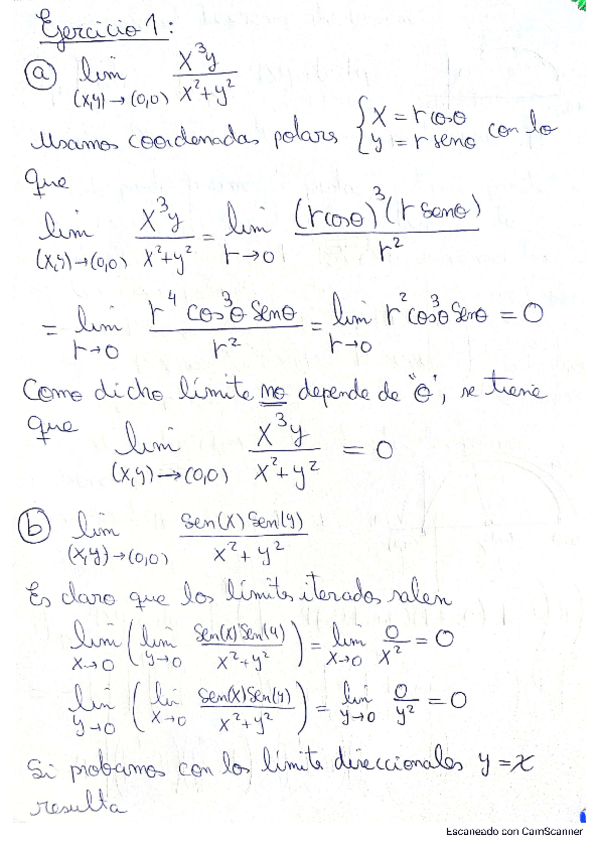 Ejercicio 1:
(a) lim x³y / x²+y²
(x,y)→(0,0)
Usamos coordenadas polares { x = r cosθ y = r senθ con lo
que
lim x³y / x²+y² = lim (r cosθ)³(r senθ) / r²
(x,y)→(0,0) r→0
= lim r⁴ cos³θ senθ / r² = lim r² cos³θ senθ = 0
r→0 r→0
Como dicho límite no depende de "θ", se tiene
que lim x³y / x²+y² = 0
(x,y)→(0,0)
(b) lim sen(x) sen(y) / x²+y²
(x,y)→(0,0)
Es claro que los límites iterados salen
lim ( lim sen(x) sen(y) / x²+y² ) = lim 0 / x² = 0
x→0 y→0 x→0
lim ( lim sen(x) sen(y) / x²+y² ) = lim 0 / y² = 0
y→0 x→0 y→0
Si probamos con los límite direccionales y = x
resulta
Escaneado con CamScanner